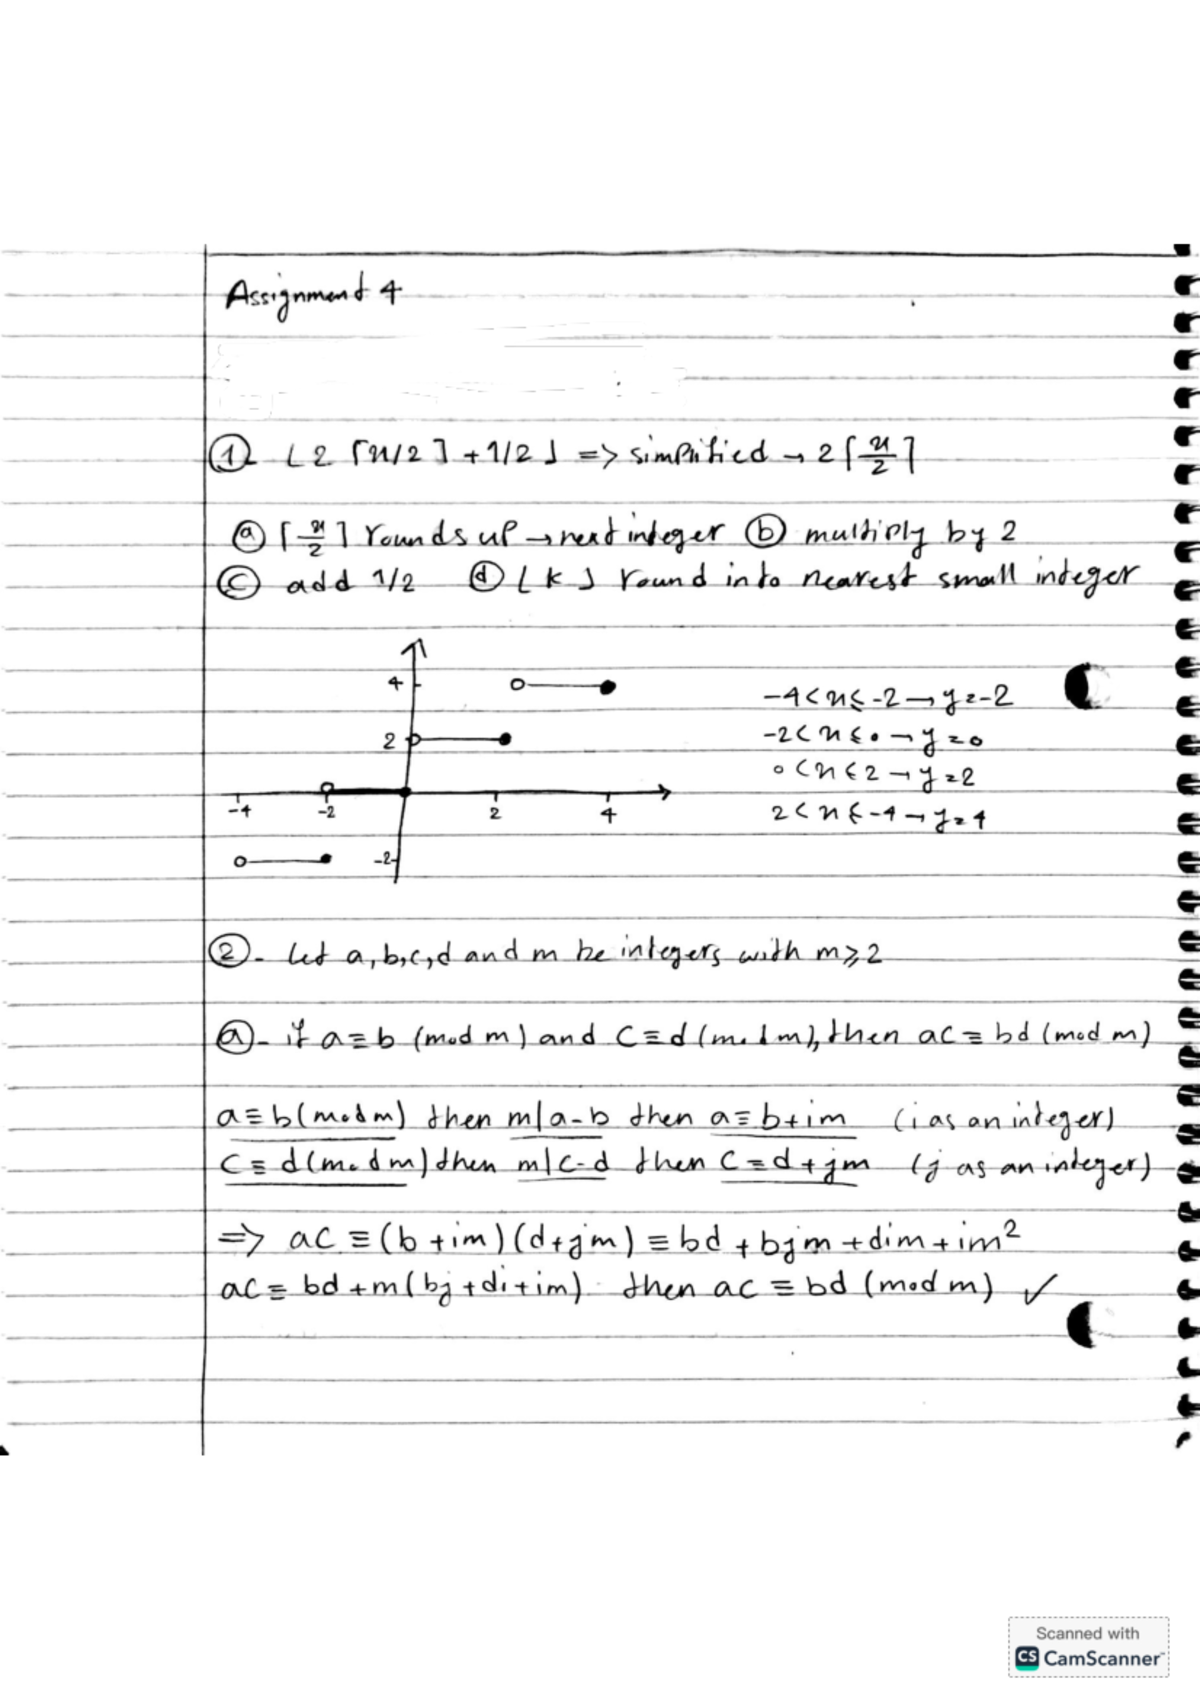 Assignment 4
① ⌊2 ⌈x/2⌉ + 1/2⌋ => simplified → 2⌈x/2⌉
ⓐ ⌈x/2⌉ rounds up → next integer ⓑ multiply by 2
ⓒ add 1/2 ⓓ ⌊k⌋ round into nearest small integer
4
-4<x≤-2→y=-2
2
-2<x≤0→y=0
0<x≤2→y=2
-4 -2 2 4
2<x≤-4→y=4
-2
②- let a,b,c,d and m be integers with m≥2
ⓐ- if a≡b (mod m) and c≡d (mod m), then ac≡bd (mod m)
a≡b(mod m) then m|a-b then a≡b+im (i as an integer)
c≡d(mod m) then m|c-d then c≡d+jm (j as an integer)
=> ac≡(b+im)(d+jm)≡bd+bjm+dim+im²
ac≡bd+m(bj+di+im) then ac≡bd (mod m) ✓
Scanned with
CS CamScanner